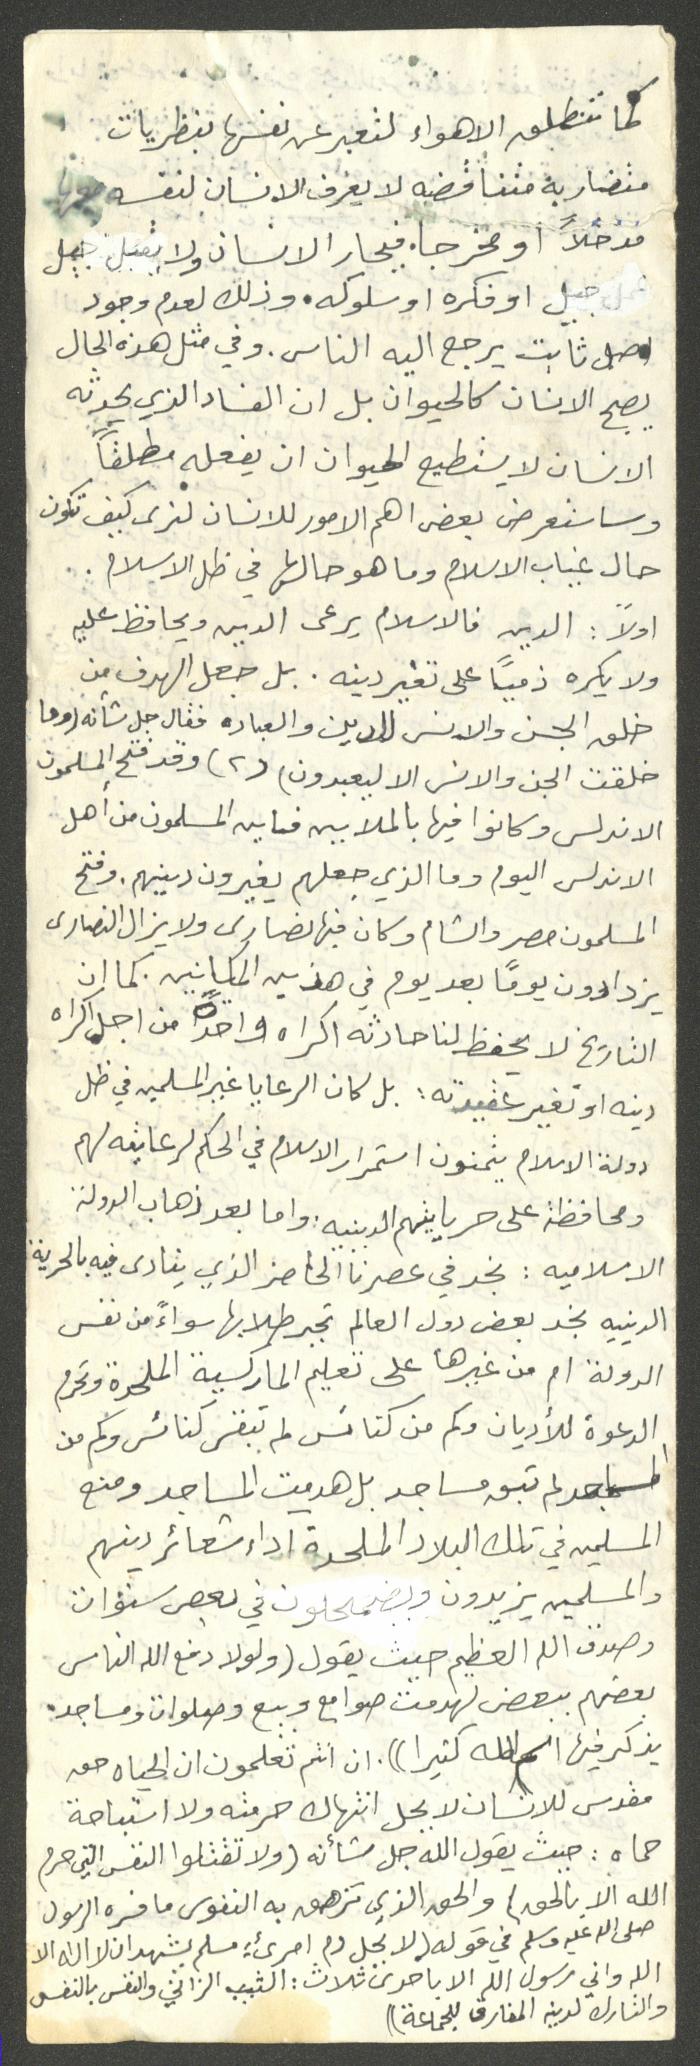 كما تنطلق الاهواء لتعبر عن نفسها بنظريات
متضاربة متناقضه لا يعرف الانسان لنفسه
مدخلاً او مخرجا. فيحار الانسان ولا يقبل جيل
جيل او فكره او سلوكه. وذلك لعدم وجود
اصل ثابت يرجع اليه الناس. وفي مثل هذه الحال
يصبح الانسان كالحيوان بل ان الفساد الذي يحدثه
الانسان لا يستطيع الحيوان ان يفعله مطلقاً
وسأستعرض بعض اهم الامور للانسان لنرى كيف تكون
حال غياب الاسلام وما هو حالها في ظل الاسلام.
اولاً: الدين فالاسلام يرعى الدين ويحافظ عليه
ولا يكره ذمياً على تغير دينه. بل جعل الهدف من
خلق الجن والانس الدين والعباده فقال جل شأنه (وما
خلقت الجن والانس الا ليعبدون) (٢) وقد فتح المسلمون
الاندلس وكانوا فيها بالملايين فأين المسلمون من أهل
الاندلس اليوم وما الذي جعلهم يغيرون دينهم. وفتح
المسلمون مصر والشام وكان فيها نصارى ولا يزال النصارى
يزدادون يومًا بعد يوم في هذين المكانين. كما ان
التاريخ لا يحفظ لنا حادثه اكراه واحدةً من اجل اكراه
دينه او تغير عقيدته: بل كان الرعايا غير المسلمين في ظل
دولة الاسلام يتمنون استمرار الاسلام في الحكم لرعايته لهم
ومحافظة على حرياتهم الدينيه: واما بعد ذهاب الدولة
الاسلاميه: نجد في عصرنا الحاضر الذي ينادى فيه بالحرية
الدينيه نجد بعض دول العالم تجبر طلابها سواءً من نفس
الدولة ام من غيرها على تعليم الماركسية الملحدة وتحرم
الدعوة للأديان وكم من كنائس لم تبقى كنائس وكم من
المساجد لم تبق مساجد بل هدمت المساجد ومنع
المسلمين في تلك البلاد الملحدة اداء شعائر دينهم
والمسلمين يزيدون ويضمحلون في بعض سنوات
وصدق الله العظيم حيث يقول (ولولا دفع الله الناس
بعضهم ببعض لهدمت صوامع وبيع وصلوات ومساجد
يذكر فيها اسم الله كثيرا)). ان انتم تعلمون ان الحياه حق
مقدس للانسان لا يحل انتهاك حرمته ولا استباحة
حماه: حيث يقول الله جل شأنه (ولا تقتلوا النفس التي حرم
الله الا بالحق) والحق الذي تزهق به النفوس ما فسره الرسول
صلى الله عليه وسلم في قوله (لا يحل دم امرىءٍ مسلم يشهد ان لا اله الا
الله واني رسول الله الا باحدى ثلاث: الثيب الزاني والنفس بالنفس
والتارك لدينه المفارق للجماعة))